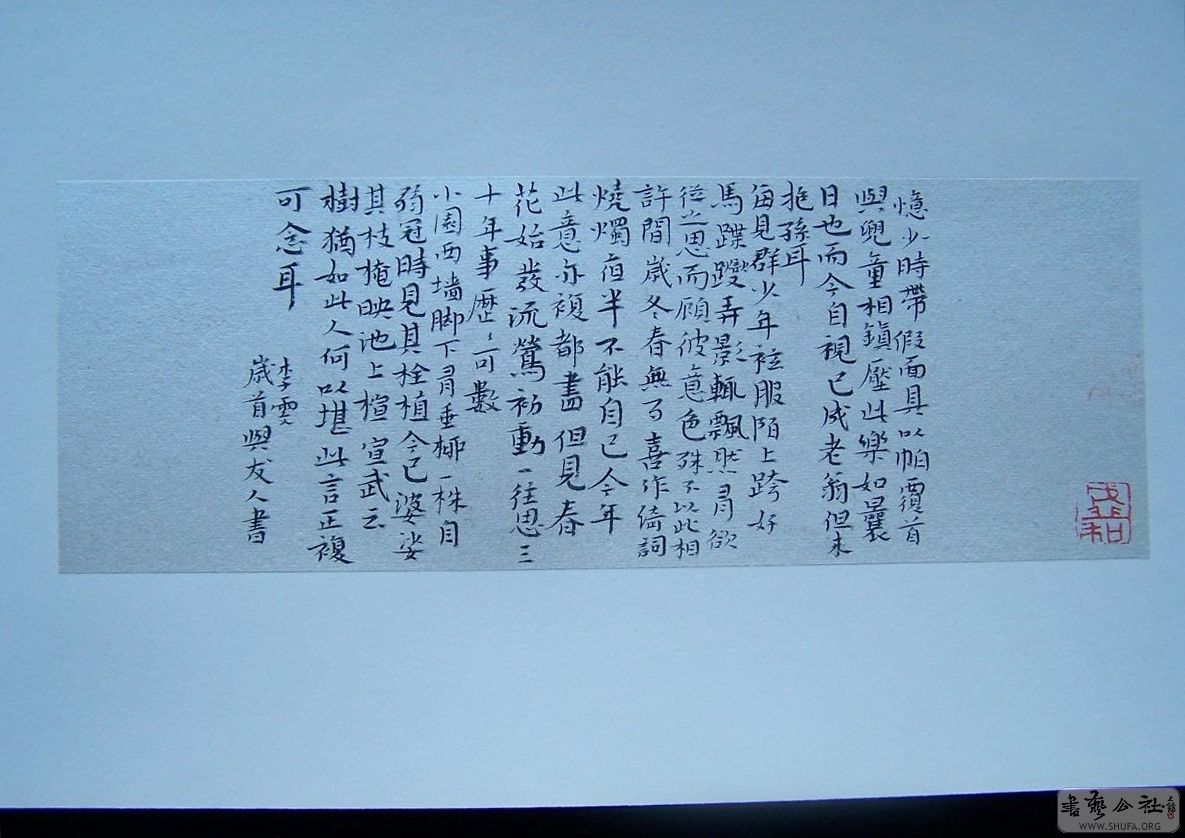 憶少時帶假面具以帕覆首
與兒童相鎮壓此樂如曩
日也而今自視已成老翁但未
抱孫耳
每見群少年袨服陌上跨好
馬蹀躞弄影輒飄然有欲
從之思而顧彼意色殊不以此相
許間歲冬春無事喜作倚詞
燒燭夜半不能自已今年
此意亦複都盡但見春
花始發流鶯初動一往思三
十年事歷〻可數
小園西墻腳下有垂柳一株自
弱冠時見其栓植今已婆娑
其枝掩映池上桓宣武云
樹猶如此人何以堪此言正複
可念耳
李雯
歲首與友人書
書藝公社
WWW.SHUFA.ORG